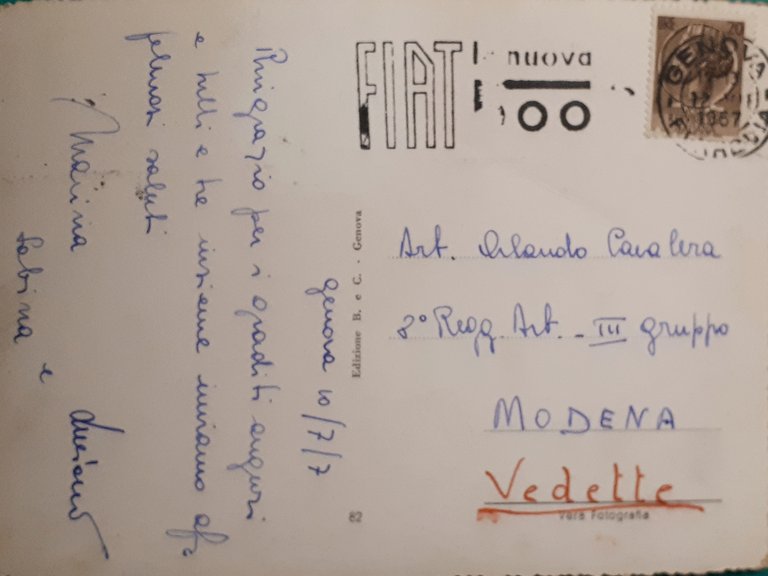 FIAT nuova
500
70
GENOVA
1967
Genova 10/7/7
Ringrazio per i graditi auguri
e tutti e tre insieme inviamo aff-
fettuosi saluti
Marina
Sabina e Luciano
Edizione B. e C. - Genova
Art. Orlando Cavalera
3° Regg. Art. - III gruppo
MODENA
Vedette
82
Vera Fotografia